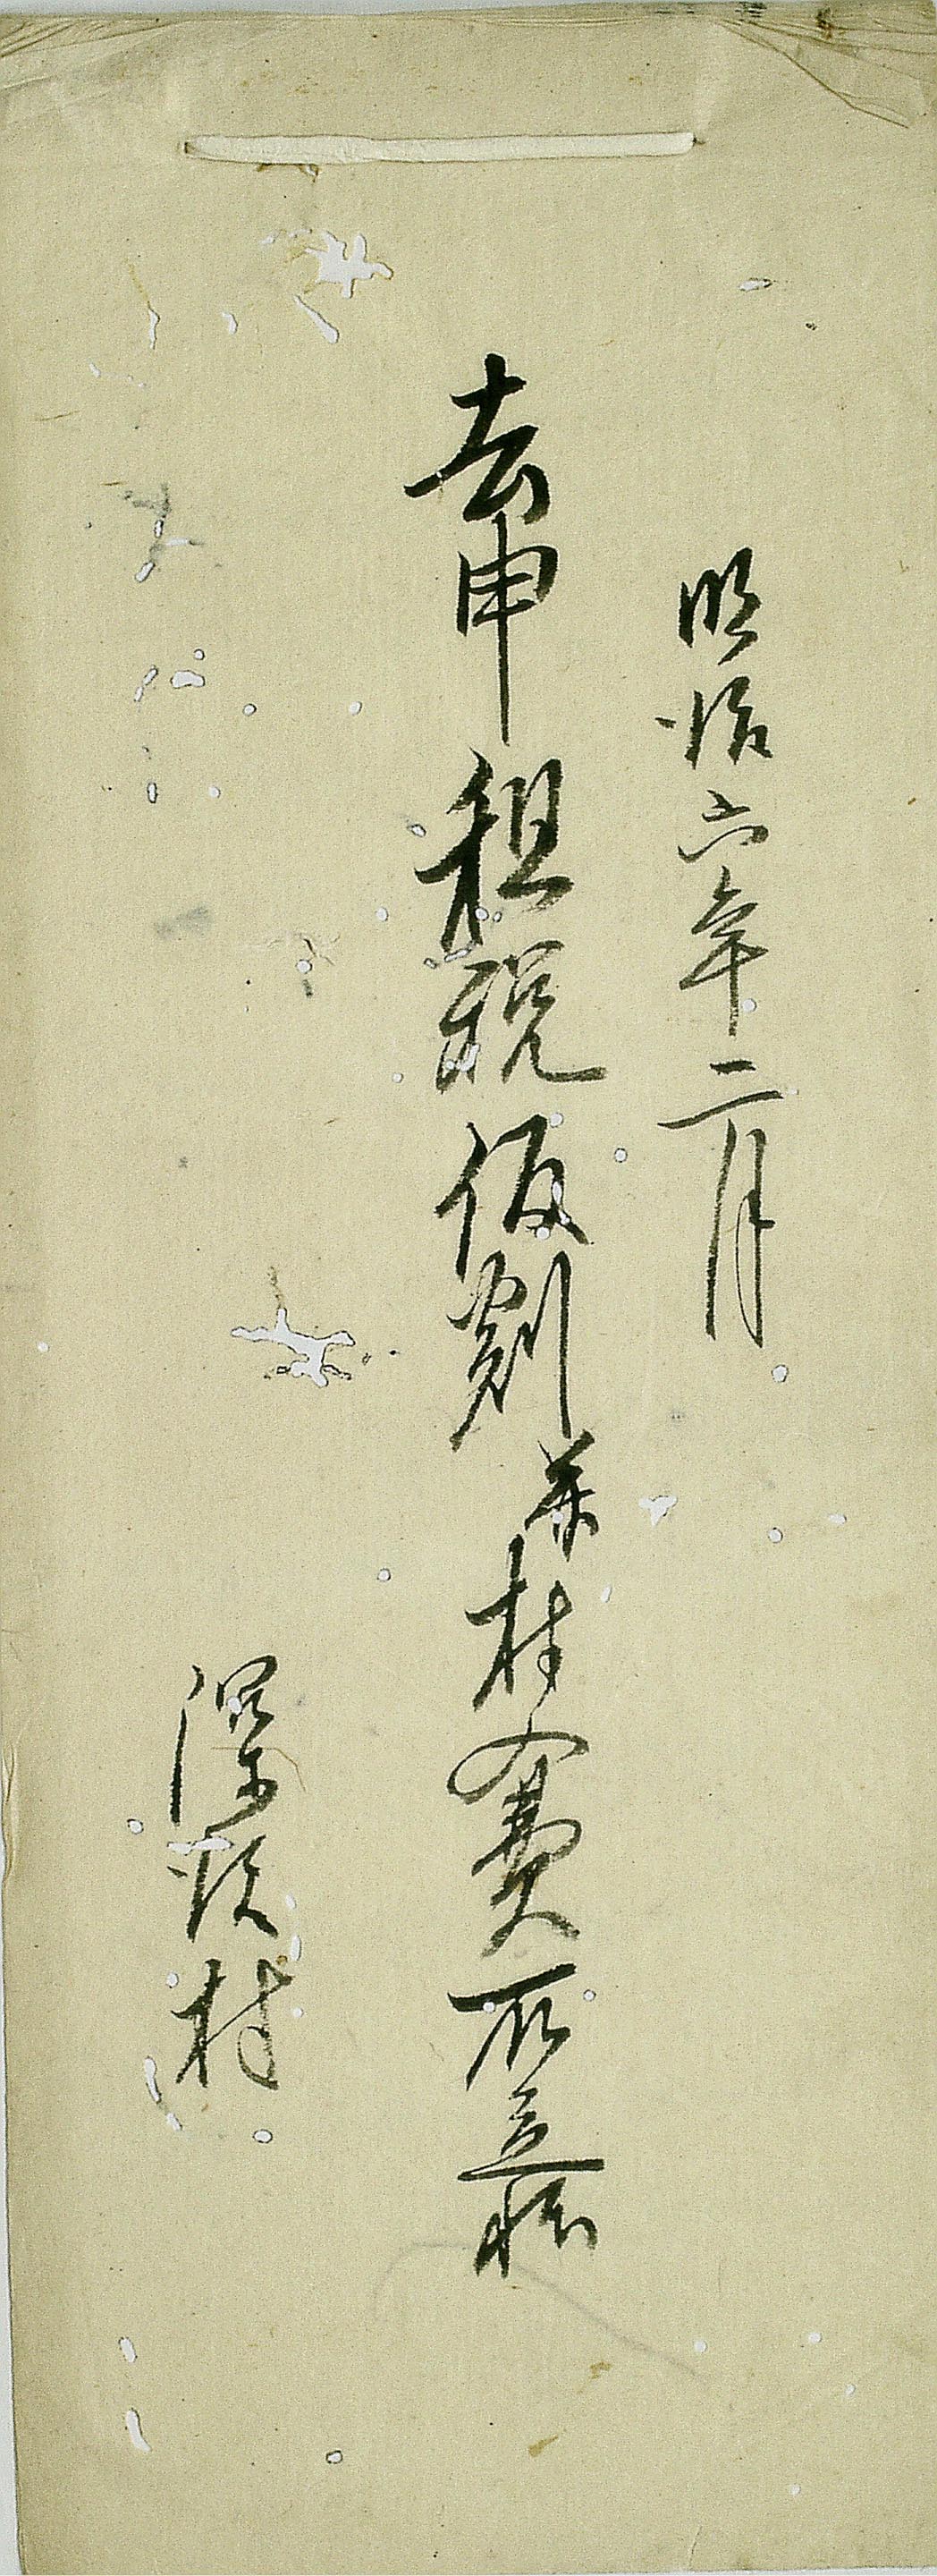 明治六年二月
去申租税仮割并村入費取立帳
深坂村